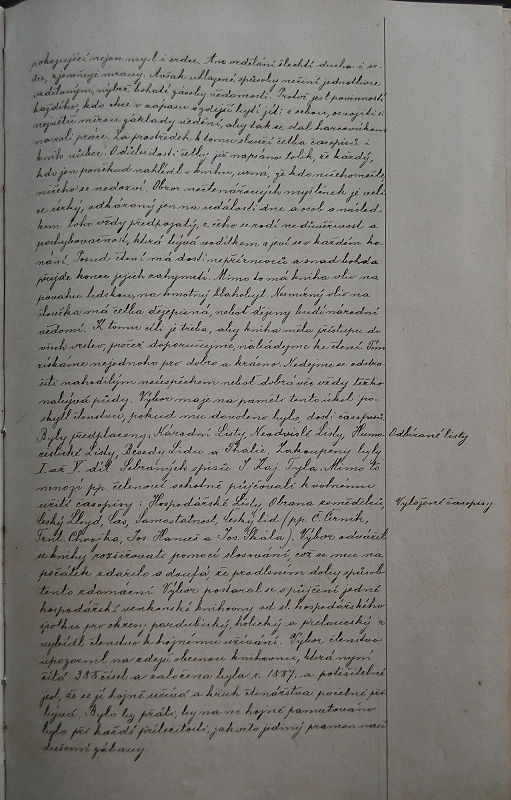 pokojující nejen mysl i srdce. Ano vzdělání šlechtí ducha i sr-
dce, zjemňuje mravy. Avšak uhlazené způsoby nečiní jednotlivce
vzdělaným, nýbrž bohaté zásoby vědomostí. Protož jest povinností
každého, kdo chce v zápasu o zdejší bytí jíti s sebou, osvojiti si
největší měrou základy vědění, aby tak se stal harcovníkem
na roli práce. Za prostředek k tomu slouží četba časopisů i
knih vůbec. O důležitosti četby již napsáno tolik, že každý,
kdo jen poněkud nahlédl v knihu, uzná, že kdo nic hone
ničeho se nedozví. Obzor nečtenářových myšlenek je veli-
ce úzký, odkázaný jen na události dne a osob a násled-
kem toho vždy předpojatý, z čehož se rodí nedůvěřivost a
pochybovačnost, která bývá vodítkem a jeví se v každém ko-
nání. Posud čtení má dosti nepříznivců a snad bohda
přijde konec jejich zahynutí. Mimo to má kniha vliv na
povahu lidskou, na hmotný blahobyt. Nesmírný vliv na
člověka má četba dějepisná, neboť dějiny budí národní
vědomí. K tomu cíli je třeba, aby kniha měla přístup do
všech vrstev, pročež doporučujme, nabádejme ke čtení. Tím
získáme nejednoho pro dobro a krásno. Nedejme se odstra-
šiti nahodilým neúspěchem neboť dobrá věc vždy těžko
nabývá půdy. Výbor maje na paměti tento úkol po-
skytl členstvu, pokud mu dovoleno bylo, dosti časopisů.
Byly předplaceny: Národní Listy, Neodvislé Listy, Humo- Odbírané listy
ristické Listy, Besedy Lidu a Thalie. Zakoupeny byly
I. až V. díl Sebraných spisů J. Kaj. Tyla. Mimo to
mnozí pp. členové ochotně půjčovali k volnému
užití časopisy: Hospodářské Listy, Obrana zemědělců, Vyložené časopisy
Český Lloyd, Čas, Samostatnost, Český lid (pp. Č. Černík,
Frant. Chvojka, Jos. Hanuš a Jos. Skála). Výbor odvážil
se knihy rozšiřovati pomocí slosování, což se mu na
počátek zdařilo a doufá že prodlením doby způsob
tento zdomácní. Výbor postaral se o půjčení jedné
hospodářské venkovské knihovny od sl. hospodářského
spolku pro okres pardubický, holický a přeloučský a
vybídl členstvo k hojnému užívání. Výbor členstvo
upozornil na zdejší obecnou knihovnu, která nyní
čítá 388 čísel a založena byla r. 1887. a potěšitelné
jest, že se jí hojně užívá a kruh čtenářstva povážlivě při-
bývá. Bylo by přáti, by na ni hojně pamatováno
bylo při každé příležitosti, jakožto jediný pramen naší
duševní zábavy.